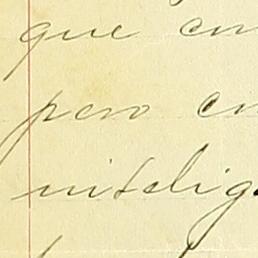 que en
pero en
intelig